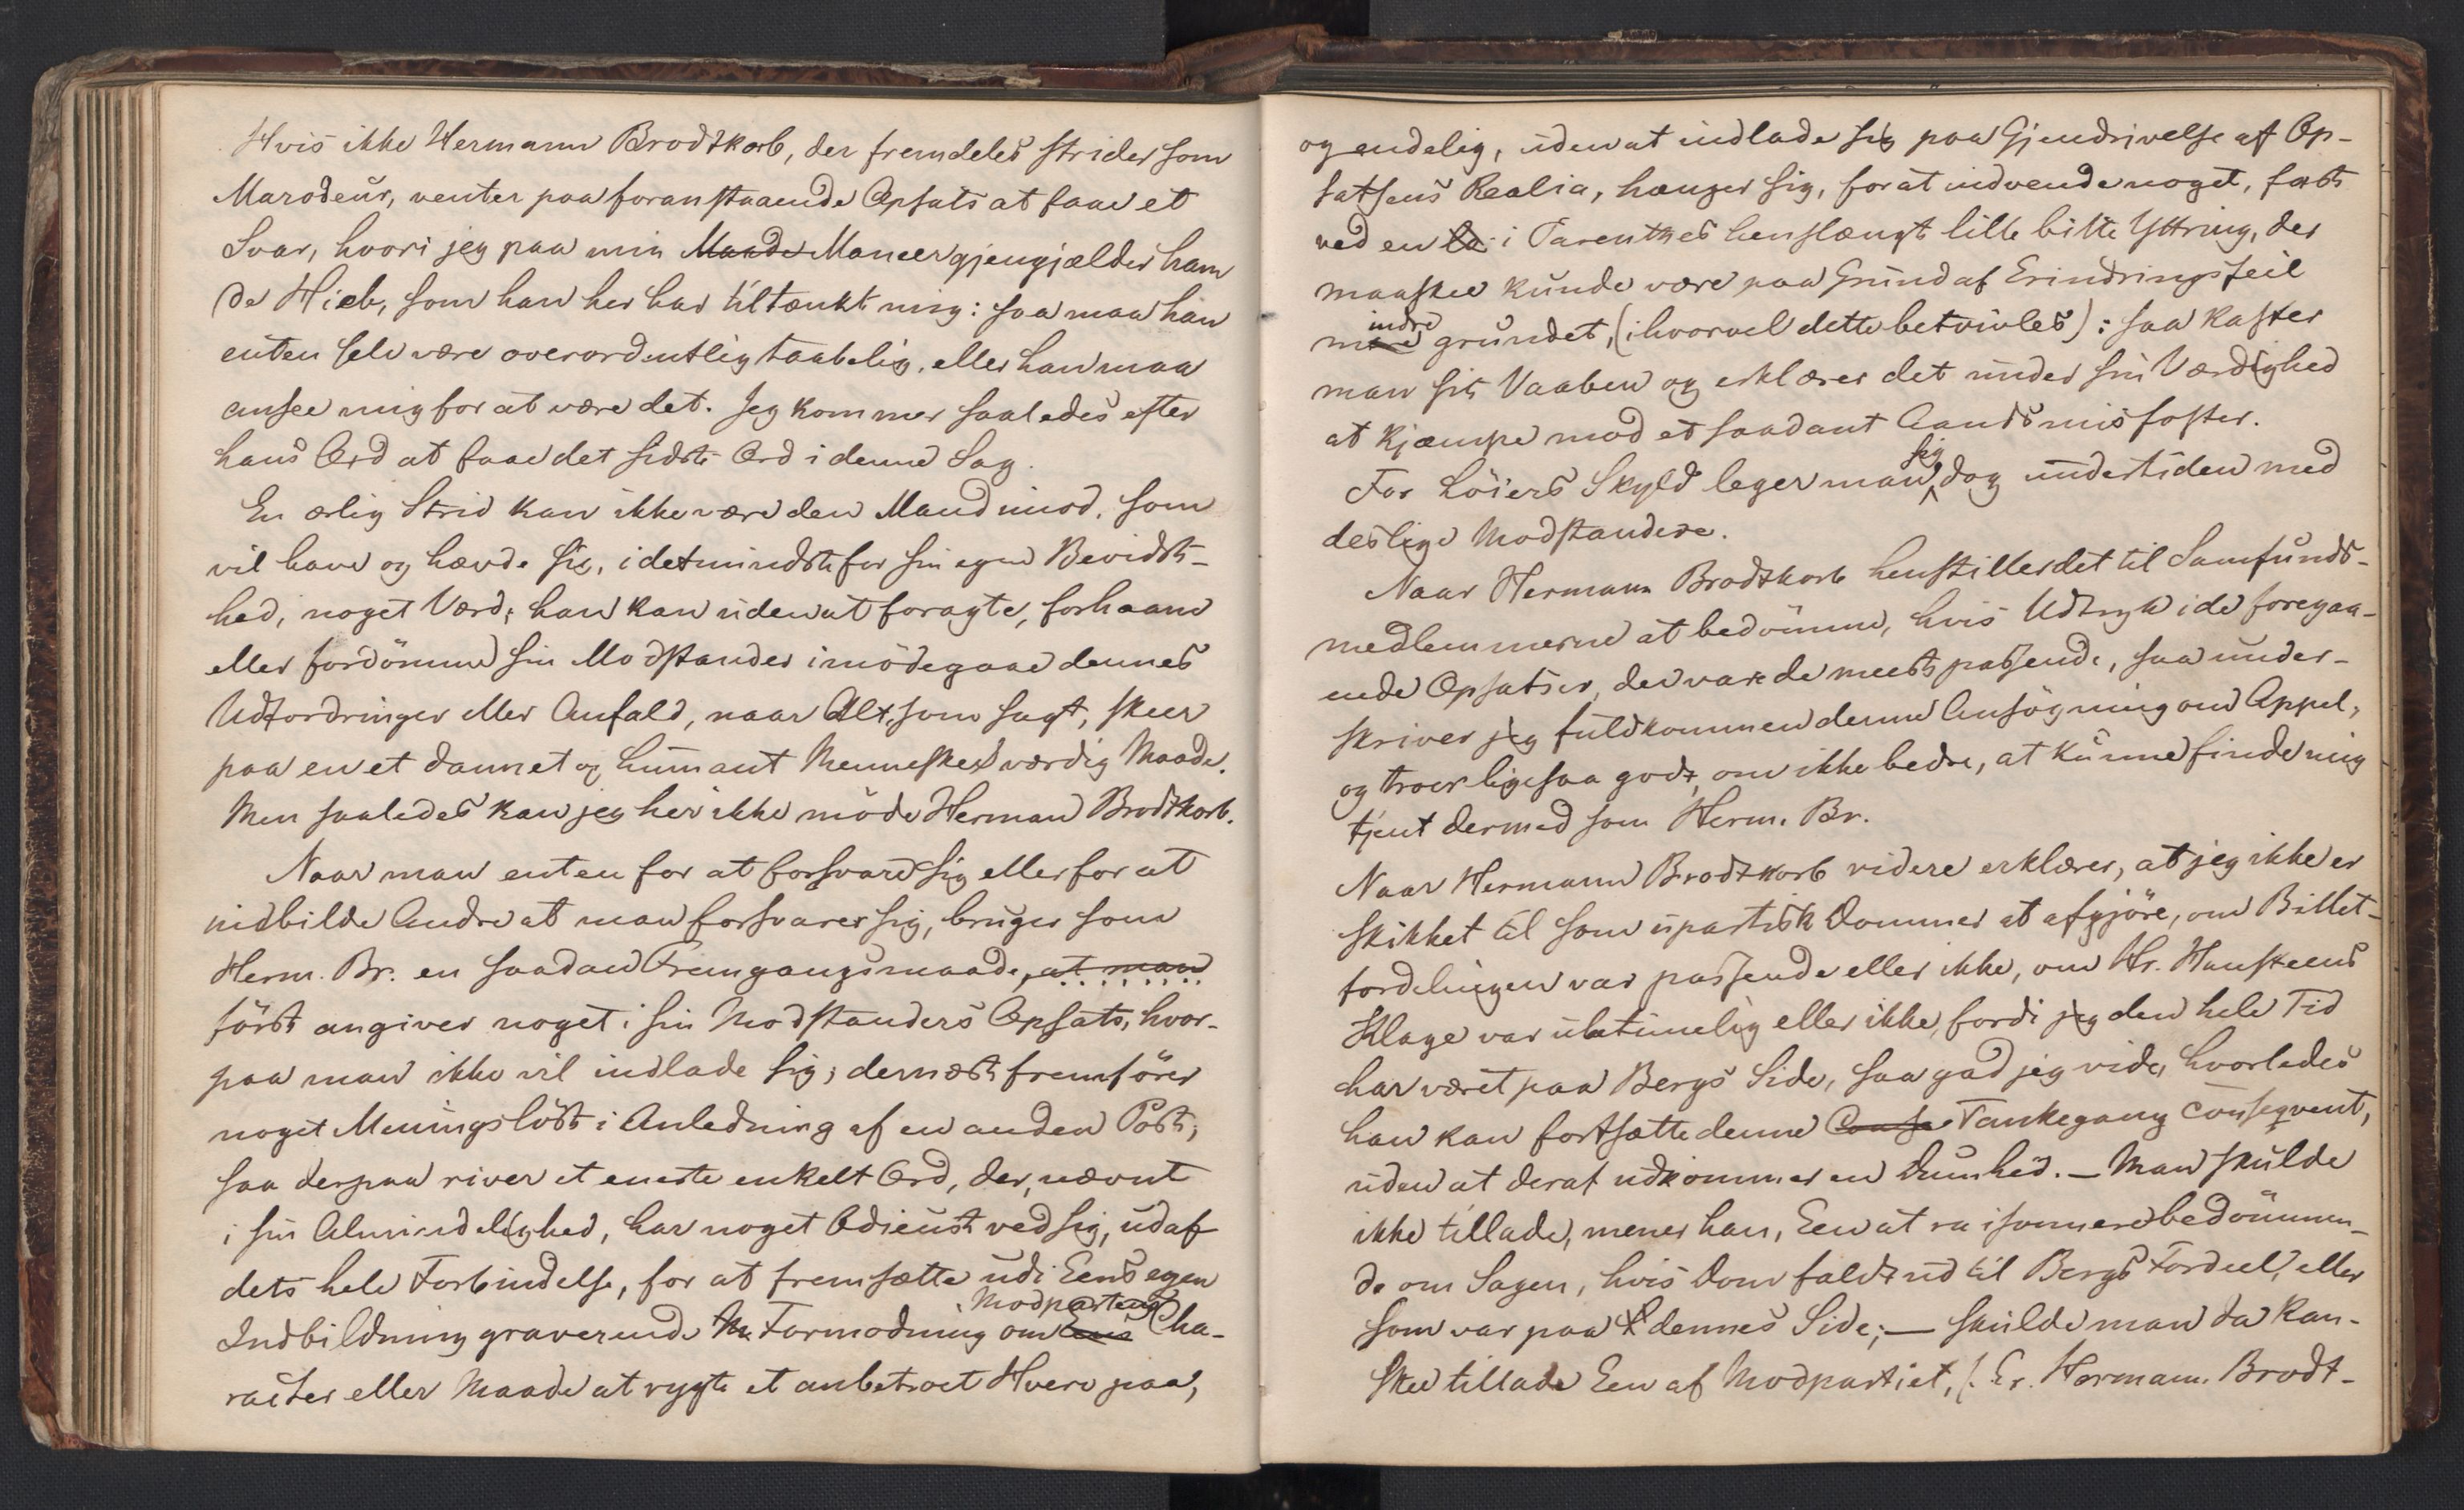 Hvis ikke Hermann Brodtkorb, der fremdeles strider som
Marodeur, venter paa foranstaaende Opsats at faae et
Svar, hvori jeg paa min Maade Maneer gjengjælder ham
de Hieb, som han her har tiltænkt mig: saa maa han
enten selv være overordentlig taabelig, eller han maa
ansee mig for at være det. Jeg kommer saaledes efter
hans Ord at faae det sidste Ord i denne Sag.
En ærlig Strid kan ikke være den Mand imod, som
vil have og hævde sig, i det mindste for sin egen Bevidst-
hed, noget Værd; han kan uden at foragte, forhaane
eller fordömme sin Modstander imödegaae dennes
Udfordringer eller Anfald, naar Alt, som sagt, skeer
paa en et dannet og humant Menneske værdig Maade.
Men saaledes kan jeg her ikke möde Herman Brodtkorb.
Naar man enten for at forsvare sig eller for at
indbilde Andre at man forsvarer sig, bruger som
Herm. Br. en saadan Fremgangsmaade, at man
först angiver noget i sin Modstanders Opsats, hvor-
paa man ikke vil indlade sig; dernæst fremförer
noget Meningslöst i Anledning af en anden Post;
saa derpaa river et eneste enkelt Ord, der, nævnt
i sin Almindelighed, har noget Odieust ved sig, ud af
dets hele Forbindelse, for at fremsætte udi Eens egen
Modpartens
Indbildning graverende M Formodning om Eens Cha-
racter eller Maade at rygte et anbetroet Hverv paa,
og endelig, uden at indlade sig paa Gjendrivelse af Op-
satsens Realia, hænger sig, for at indvende noget, fast
ved en la i Parenthes henslængt lille bitte Yttring, der
maaskee kunde være paa Grund af Erindringsfeil
indre
mere grundet, (ihvorvel dette betvivles): saa kaster
man sit Vaaben og erklærer det under sin Værdighed
at kjæmpe mod et saadant Aandsmisfoster.
sig
For Löiers Skyld leger man dog undertiden med
deslige Modstandere.
Naar Hermann Brodtkorb henstiller det til Samfunds-
medlemmerne at bedömme, hvis Udtryk i de foregaa-
ende Opsatser, der vare de meest passende, saa under-
skriver jeg fuldkommen denne Ansögning om Appel,
og troer ligesaa godt, om ikke bedre, at kunne finde mig
tjent dermed som Herm. Br.
Naar Hermann Brodtkorb videre erklærer, at jeg ikke er
skikket til som upartisk Dommer at afgjöre, om Billet-
fordelingen var passende eller ikke, om Hr. Hansteens
Klage var ubetimelig eller ikke, fordi jeg den hele Tid
har været paa Bergs Side, saa gad jeg vide, hvorledes
han kan fortsætte denne Conse Tankegang conseqvent,
uden at deraf udkommer en Dumhed. – Man skulde
ikke tillade, mener han, Een at raisonnere bedömmen-
de om Sagen, hvis Dom faldt ud til Bergs Fordeel, eller
som var paa dennes Side; – skulde man da kan-
skee tillade Een af Modpartiet, f. Ex. Hermann Brodt-